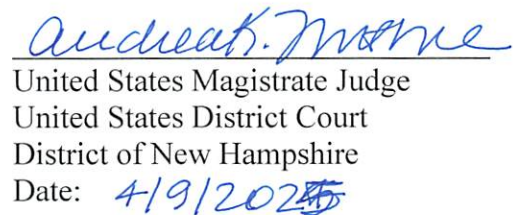 Andrea K.
United States Magistrate Judge
United States District Court
District of New Hampshire
Date: 4/9/2025